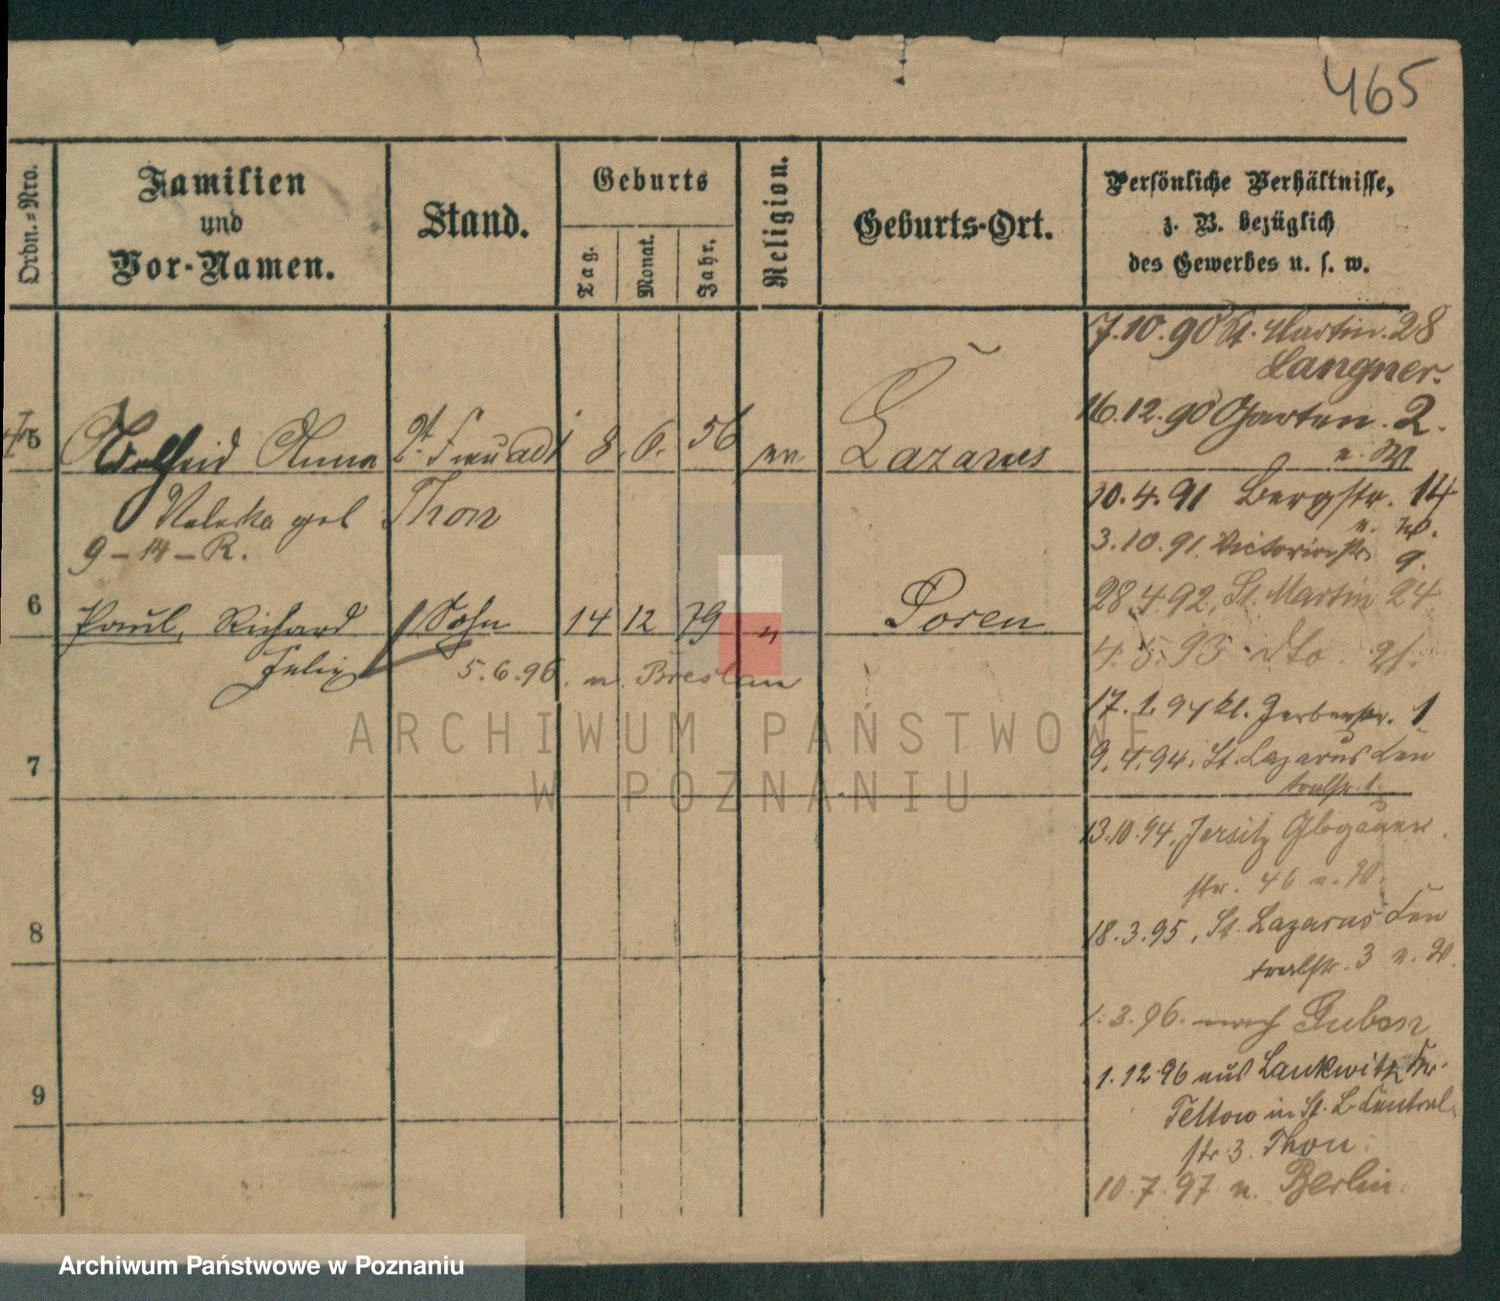 465
Ordn.=Nro.
Familien
und
Vor-Namen.
Stand.
Geburts
Tag.
Monat.
Jahr.
Religion.
Geburts-Ort.
Persönliche Verhältnisse,
z. B. bezüglich
des Gewerbes u. s. w.
7.10.90 St. Martin. 28
Langner.
16.12.90 Garten. 2.
u. W
5 Anna 8. 6. 56 Lazarus
30.4.91 Bergstr. 14
u. W.
geb Thon
3.10.91 Victoriastr. 9.
9-14-R.
28.4.92. St. Martin 24
6 Paul, Richard Sohn 14 12 79 " Posen
Felix
4.5.93 dto. 21.
5.6.96. n. Breslau
17.1.94 kl. Gerberstr. 1
9.4.94. St. Lazarus Cen
tralstr. 1
7
13.10.94. Jersitz Glogauer
str. 46 u. W.
8
18.3.95, St. Lazarus Cen
tralstr. 3 u. W.
1.3.96. nach Guben
1.12.96 aus Lankwitz Kr.
9
Teltow in St. L. Central-
str 3. Thon.
10.7.97 n. Berlin
ARCHIWUM PAŃSTWOWE
W POZNANIU
Archiwum Państwowe w Poznaniu